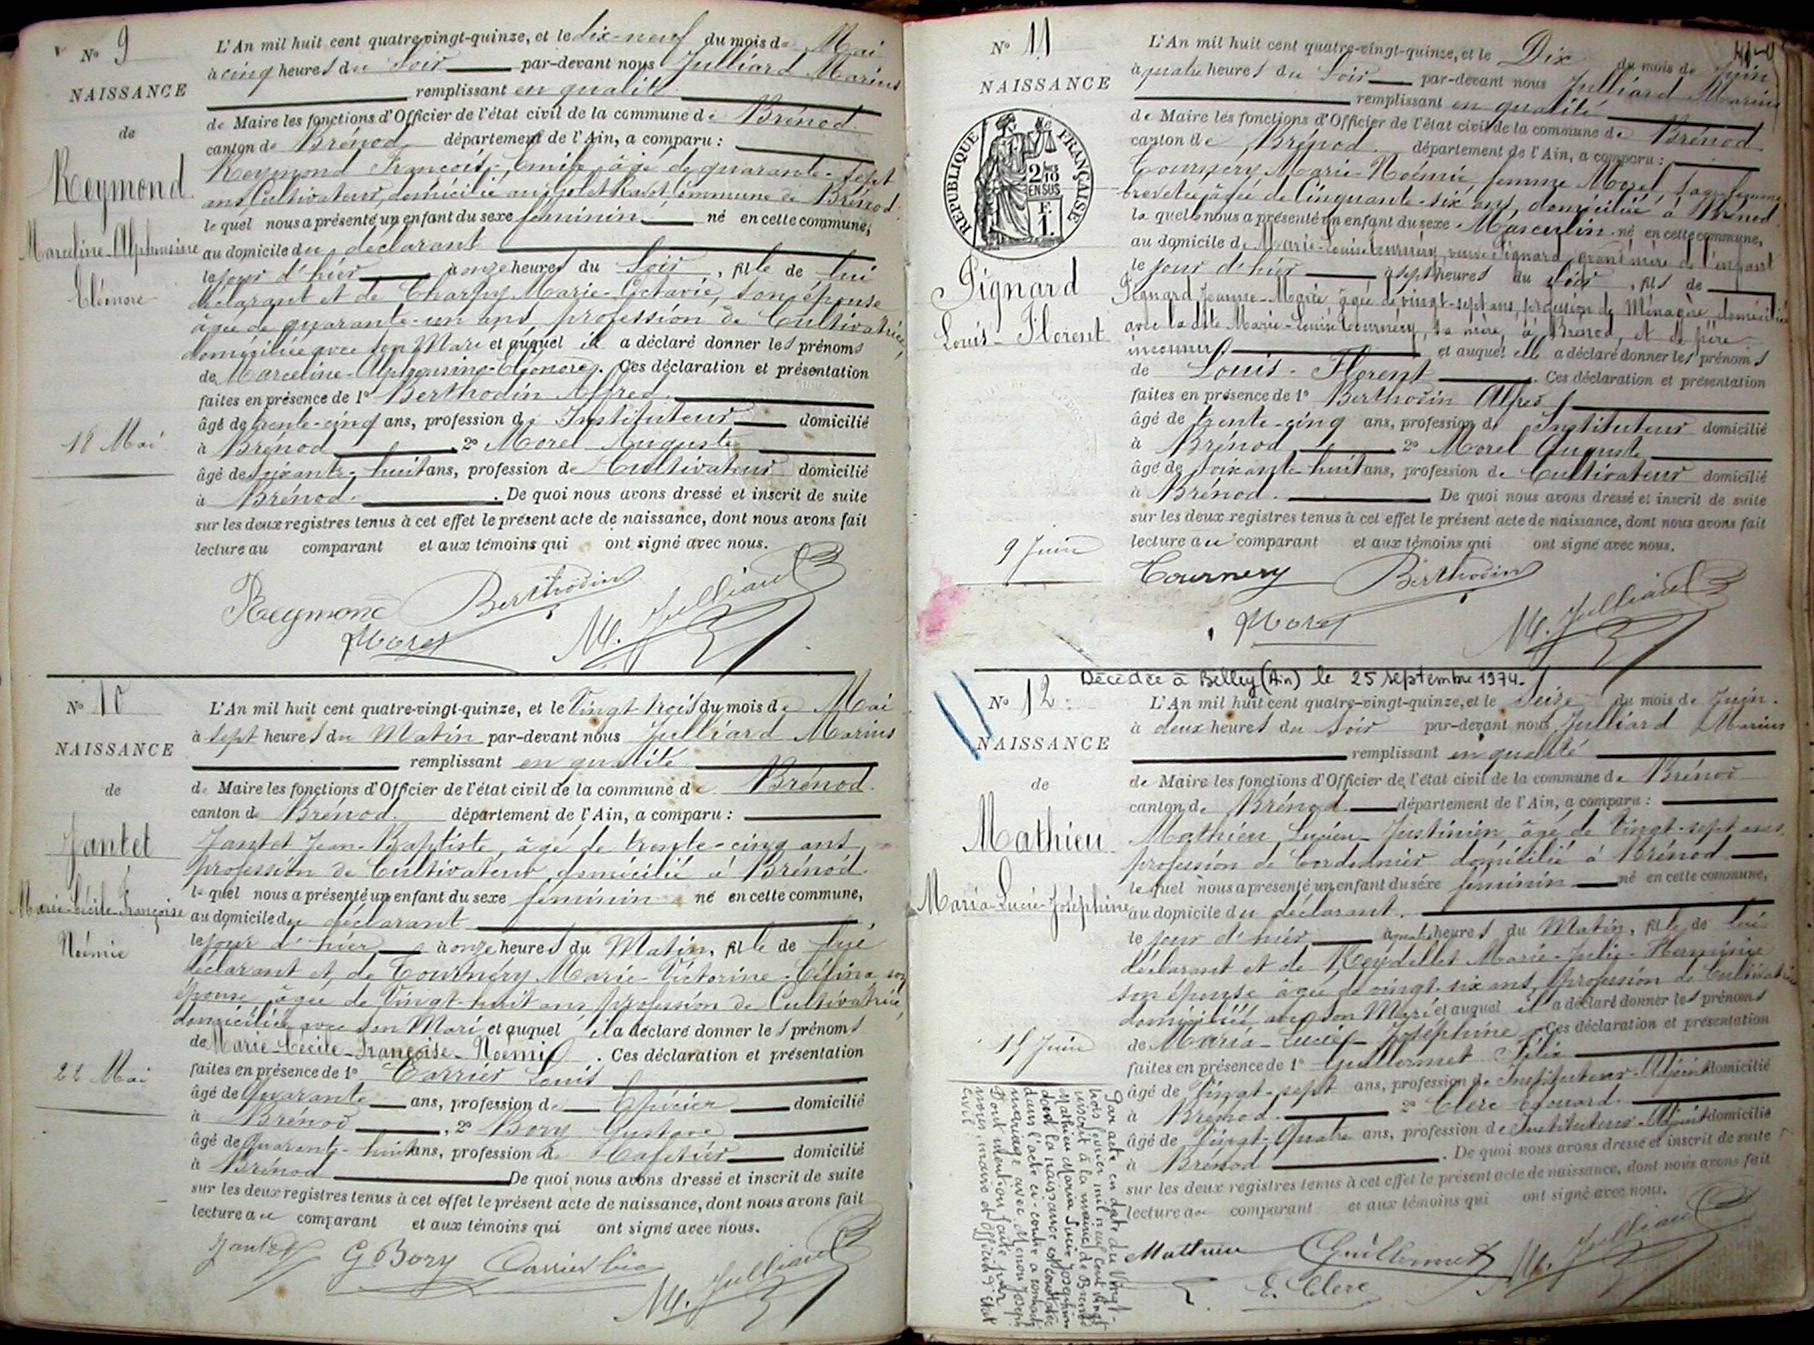 Nº 9
NAISSANCE
de
Reymond
Marceline-Alphonsine
Eléonore
18 Mai
L'An mil huit cent quatre-vingt-quinze, et le dix-neuf du mois de Mai
à cinq heures du Soir par-devant nous Julliard Marius
remplissant en qualité
de Maire les fonctions d'Officier de l'état civil de la commune de Brénod
canton de Brénod département de l'Ain, a comparu :
Reymond François-Emile âgé de quarante-sept
ans Cultivateur, domicilié au commune de Brénod
le quel nous a présenté un enfant du sexe féminin né en cette commune,
au domicile du déclarant
le jour d'hier à onze heures du Soir, fille de lui
déclarant et de Charpy Marie-Octavie, son épouse
âgée de quarante-un ans profession de Cultivatrice,
domiciliée avec son Mari et auquel il a déclaré donner les prénoms
de Marceline-Alphonsine-Eléonore. Ces déclaration et présentation
faites en présence de 1º Berthodin Alfred
âgé de trente-cinq ans, profession de Instituteur domicilié
à Brénod 2º Morel Auguste
âgé de soixante-huit ans, profession de Cultivateur domicilié
à Brénod. De quoi nous avons dressé et inscrit de suite
sur les deux registres tenus à cet effet le présent acte de naissance, dont nous avons fait
lecture au comparant et aux témoins qui ont signé avec nous.
Reymond Berthodin
Morel M. Julliard
Nº 10
NAISSANCE
de
Jantet
Marie-Cécile-Françoise
Noémie
22 Mai
L'An mil huit cent quatre-vingt-quinze, et le Vingt-trois du mois de Mai
à sept heures du Matin par-devant nous Julliard Marius
remplissant en qualité
de Maire les fonctions d'Officier de l'état civil de la commune de Brénod.
canton de Brénod. département de l'Ain, a comparu :
Jantet Jean-Baptiste, âgé de trente-cinq ans
profession de Cultivateur domicilié à Brénod
le quel nous a présenté un enfant du sexe féminin né en cette commune,
au domicile du déclarant
le jour d'hier à onze heures du Matin, fille de lui
déclarant et de Tournéry Marie-Victorine-Célina son
épouse âgée de Vingt-huit ans profession de Cultivatrice,
domiciliée avec son Mari et auquel il a déclaré donner les prénoms
de Marie-Cécile-Françoise-Noémie. Ces déclaration et présentation
faites en présence de 1º Carrier Louis
âgé de Quarante ans, profession de Epicier domicilié
à Brénod, 2º Bory Gustave
âgé de Quarante-huit ans, profession de Cafetier domicilié
à Brénod De quoi nous avons dressé et inscrit de suite
sur les deux registres tenus à cet effet le présent acte de naissance, dont nous avons fait
lecture au comparant et aux témoins qui ont signé avec nous.
Jantet G Bory Carrier
M. Julliard
Nº 11
NAISSANCE
RÉPUBLIQUE FRANÇAISE
2/10
EN SUS
F.
1.
Pignard
Louis-Florent
9 Juin
L'An mil huit cent quatre-vingt-quinze, et le Dix du mois de Juin
à quatre heures du Soir par-devant nous Julliard Marius
remplissant en qualité
de Maire les fonctions d'Officier de l'état civil de la commune de Brénod
canton de Brénod département de l'Ain, a comparu :
Tournéry Marie-Noémie femme Morel, sage-femme
brevetée âgée de Cinquante-six ans, domiciliée à Brénod
la quelle nous a présenté un enfant du sexe Masculin né en cette commune,
au domicile de Marie-Louise Tournéry, veuve Pignard, grand'mère de l'enfant
le jour d'hier à sept heures du Soir, fils de
Pignard Jeanne-Marie âgée de vingt-sept ans, profession de Ménagère, domiciliée
avec la dite Marie-Louise Tournéry, sa mère, à Brénod, et de père
inconnu et auquel elle a déclaré donner les prénoms
de Louis-Florent. Ces déclaration et présentation
faites en présence de 1º Berthodin Alfred
âgé de trente-cinq ans, profession de Instituteur domicilié
à Brénod 2º Morel Auguste
âgé de soixante-huit ans, profession de Cultivateur domicilié
à Brénod. De quoi nous avons dressé et inscrit de suite
sur les deux registres tenus à cet effet le présent acte de naissance, dont nous avons fait
lecture au comparant et aux témoins qui ont signé avec nous.
Tournery Berthodin
Morel M. Julliard
Décédée à Belley (Ain) le 25 septembre 1974.
Nº 12
NAISSANCE
de
Mathieu
Maria-Lucie-Joséphine
15 Juin
Par acte en date du Vingt-
trois février mil neuf cent vingt
inscrit à la mairie de Brénod
Mathieu Maria Lucie Joséphine
dont la naissance est constatée
dans l'acte ci-contre a contracté
mariage avec Menou Joseph
Dont mention faite par
nous, maire et officier d'état
civil.
L'An mil huit cent quatre-vingt-quinze, et le Seize du mois de Juin.
à deux heures du Soir par-devant nous Julliard Marius
remplissant en qualité
de Maire les fonctions d'Officier de l'état civil de la commune de Brénod
canton de Brénod département de l'Ain, a comparu :
Mathieu Lucien-Justinien âgé de Vingt-sept ans
profession de Cordonnier domicilié à Brénod
le quel nous a présenté un enfant du sexe féminin né en cette commune,
au domicile du déclarant.
le jour d'hier à quatre heures du Matin, fille de lui
déclarant et de Reydellet Marie-Julie-Herminie
son épouse âgée de vingt-six ans profession de Cultivatrice
domiciliée avec son Mari et auquel il a déclaré donner les prénoms
de Maria-Lucie-Joséphine. Ces déclaration et présentation
faites en présence de 1º Guillermet Félix
âgé de Vingt-sept ans, profession de Instituteur-Adjoint domicilié
à Brénod. 2º Clerc Edouard.
âgé de Vingt-Quatre ans, profession de Instituteur-Adjoint domicilié
à Brénod. De quoi nous avons dressé et inscrit de suite
sur les deux registres tenus à cet effet le présent acte de naissance, dont nous avons fait
lecture au comparant et aux témoins qui ont signé avec nous.
Mathieu Guillermet M. Julliard
E. Clerc